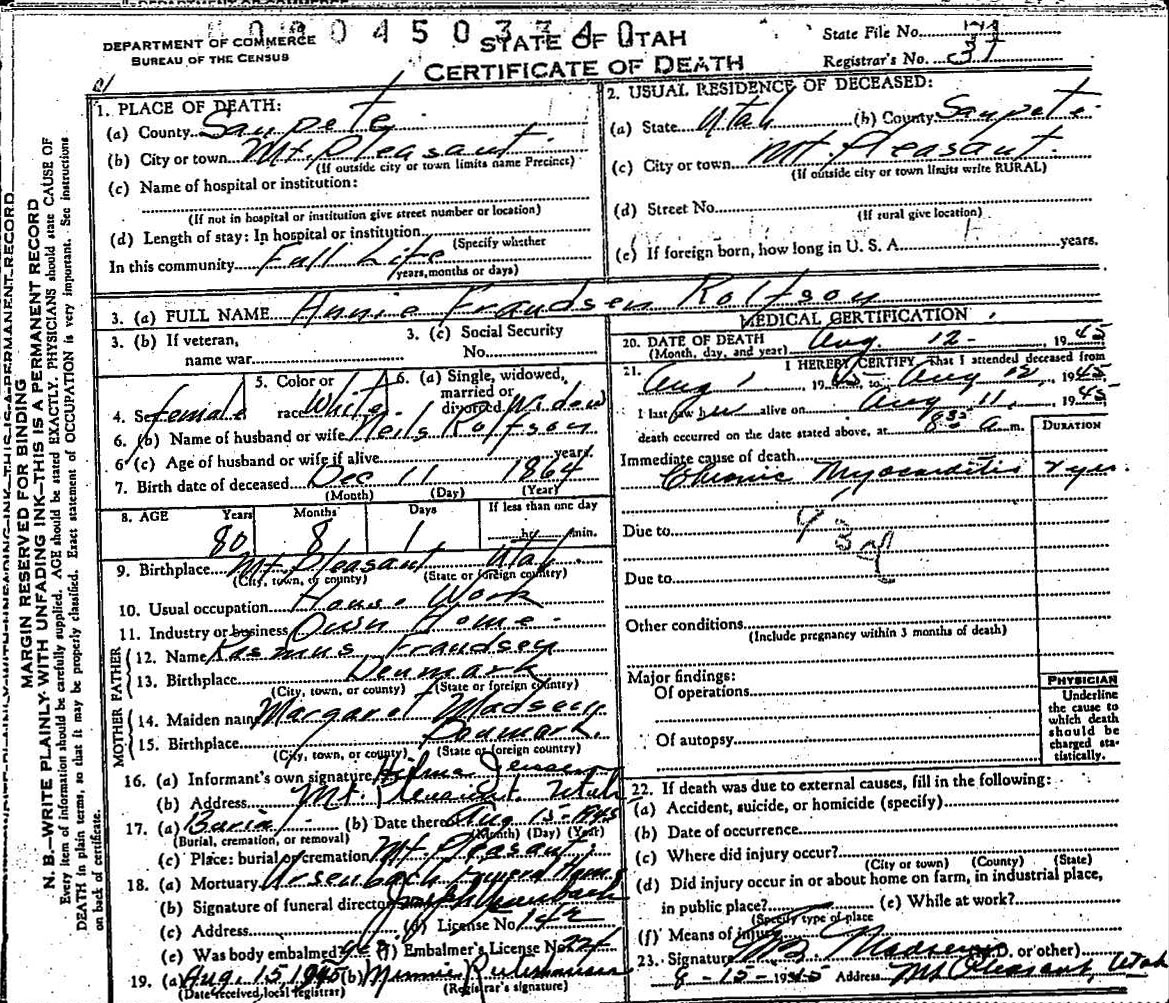 DEPARTMENT OF COMMERCE
BUREAU OF THE CENSUS
STATE OF UTAH
CERTIFICATE OF DEATH
State File No.
Registrar's No. 37
MARGIN RESERVED FOR BINDING
N. B.—WRITE PLAINLY WITH UNFADING INK—THIS IS A PERMANENT RECORD
Every item of information should be carefully supplied. AGE should be stated EXACTLY. PHYSICIANS should state CAUSE OF
DEATH in plain terms, so that it may be properly classified. Exact statement of OCCUPATION is very important. See instructions
on back of certificate.
1. PLACE OF DEATH:
(a) County Sanpete
(b) City or town Mt. Pleasant
(If outside city or town limits name Precinct)
(c) Name of hospital or institution:
(If not in hospital or institution give street number or location)
(d) Length of stay: In hospital or institution
(Specify whether
In this community Full Life
years, months or days)
2. USUAL RESIDENCE OF DECEASED:
(a) State Utah (b) County Sanpete
(c) City or town Mt Pleasant
(If outside city or town limits write RURAL)
(d) Street No.
(If rural give location)
(e) If foreign born, how long in U. S. A. years.
3. (a) FULL NAME Annie Frandsen Rolfson
3. (b) If veteran,
name war
3. (c) Social Security
No.
4. Sex female
5. Color or
race White
6. (a) Single, widowed,
married or
divorced Widow
6. (b) Name of husband or wife Neils Rolfson
6 (c) Age of husband or wife if alive years.
7. Birth date of deceased Dec 11 1864
(Month) (Day) (Year)
8. AGE Years Months Days If less than one day
80 8 1 hr. min.
9. Birthplace Mt Pleasant Utah
(City, town, or county) (State or foreign country)
10. Usual occupation House Work
11. Industry or business Own Home
FATHER
12. Name Rasmus Frandsen
13. Birthplace Denmark
(City, town, or county) (State or foreign country)
MOTHER
14. Maiden name Margaret Madsen
15. Birthplace Denmark.
(City, town, or county) (State or foreign country)
16. (a) Informant's own signature Hilma Jensen
(b) Address Mt. Pleasant Utah
17. (a) Burial (b) Date thereof Aug 15 - 1945
(Burial, cremation, or removal) (Month) (Day) (Year)
(c) Place: burial or cremation Mt Pleasant
18. (a) Mortuary Ursenbach Funeral Home
(b) Signature of funeral director Ursenbach
(c) Address (d) License No. 142
(e) Was body embalmed? yes (f) Embalmer's License No.
19. (a) Aug. 15, 1945 (b) Minnie
(Date received local registrar) (Registrar's signature)
MEDICAL CERTIFICATION
20. DATE OF DEATH Aug. 12 - 1945
(Month, day, and year)
21. I HEREBY CERTIFY, That I attended deceased from
Aug 1, 1945 to Aug 12, 1945
I last saw her alive on Aug 11, 1945
death occurred on the date stated above, at 8:30 a m.
DURATION
Immediate cause of death
Chronic Myocarditis yrs.
Due to
93d
Due to
Other conditions
(Include pregnancy within 3 months of death)
Major findings:
Of operations
Of autopsy
PHYSICIAN
Underline
the cause to
which death
should be
charged sta-
tistically.
22. If death was due to external causes, fill in the following:
(a) Accident, suicide, or homicide (specify)
(b) Date of occurrence
(c) Where did injury occur?
(City or town) (County) (State)
(d) Did injury occur in or about home on farm, in industrial place,
in public place? (e) While at work?
(Specify type of place
(f) Means of injury
23. Signature Madsen M.D. or other)
8 - 15 - 1945 Address Mt Pleasant, Utah